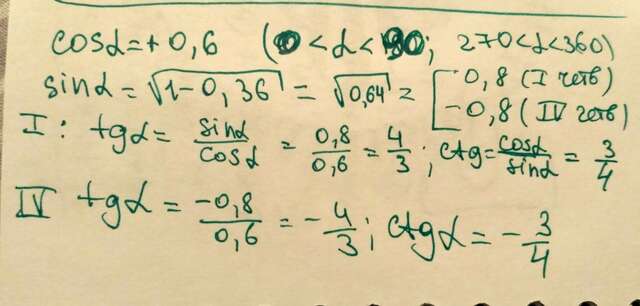 cosα=+0,6 (0<α<90; 270<α<360)
sinα=√1-0,36 = √0,64 = [0,8 (I четв) -0,8 (IV четв)
I: tgα= sinα/cosα = 0,8/0,6 = 4/3; ctg=cosα/sinα = 3/4
IV tgα = -0,8/0,6 = -4/3; ctgα = -3/4